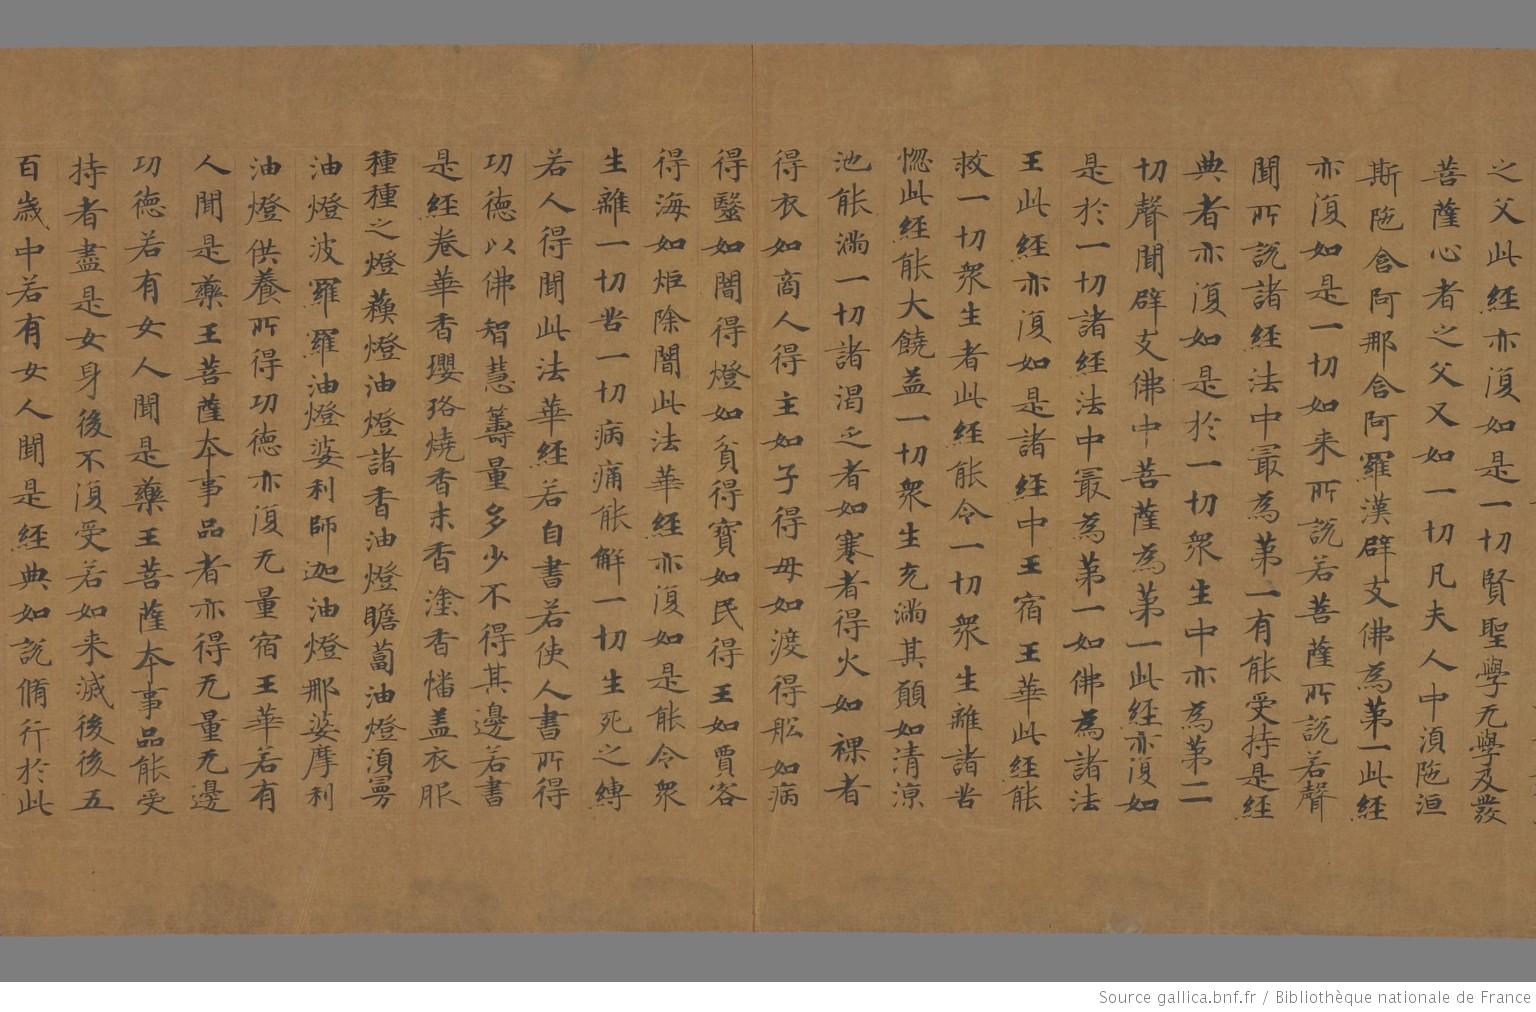 之父此經亦復如是一切賢聖學无學及發
菩薩心者之父又如一切凡夫人中湏陁洹
斯陁含阿那含阿羅漢辟支佛為第一此經
亦復如是一切如来所說若菩薩所說若聲
聞所說諸經法中㝡為第一有能受持是經
典者亦復如是於一切衆生中亦為第二
切聲聞辟支佛中菩薩為第一此經亦復如
是於一切諸經法中㝡為第一如佛為諸法
王此經亦復如是諸經中王宿王華此經能
救一切衆生者此經能令一切衆生離諸苦
惚此經能大饒益一切衆生充滿其願如清涼
池能滿一切諸渴乏者如寒者得火如裸者
得衣如商人得主如子得母如渡得舩如病
得毉如闇得燈如貧得寶如民得王如賈客
得海如炬除闇此法華經亦復如是能令衆
生離一切苦一切病痛能解一切生死之縛
若人得聞此法華經若自書若使人書所得
功德以佛智慧籌量多少不得其邊若書
是經卷華香瓔珞燒香末香塗香幡盖衣服
種種之燈蘓燈油燈諸香油燈瞻蔔油燈湏曼
油燈波羅羅油燈婆利師迦油燈那婆摩利
油燈供養所得功德亦復无量宿王華若有
人聞是藥王菩薩本事品者亦得无量无邊
功德若有女人聞是藥王菩薩本事品能受
持者盡是女身後不復受若如来滅後後五
百歲中若有女人聞是經典如說脩行於此